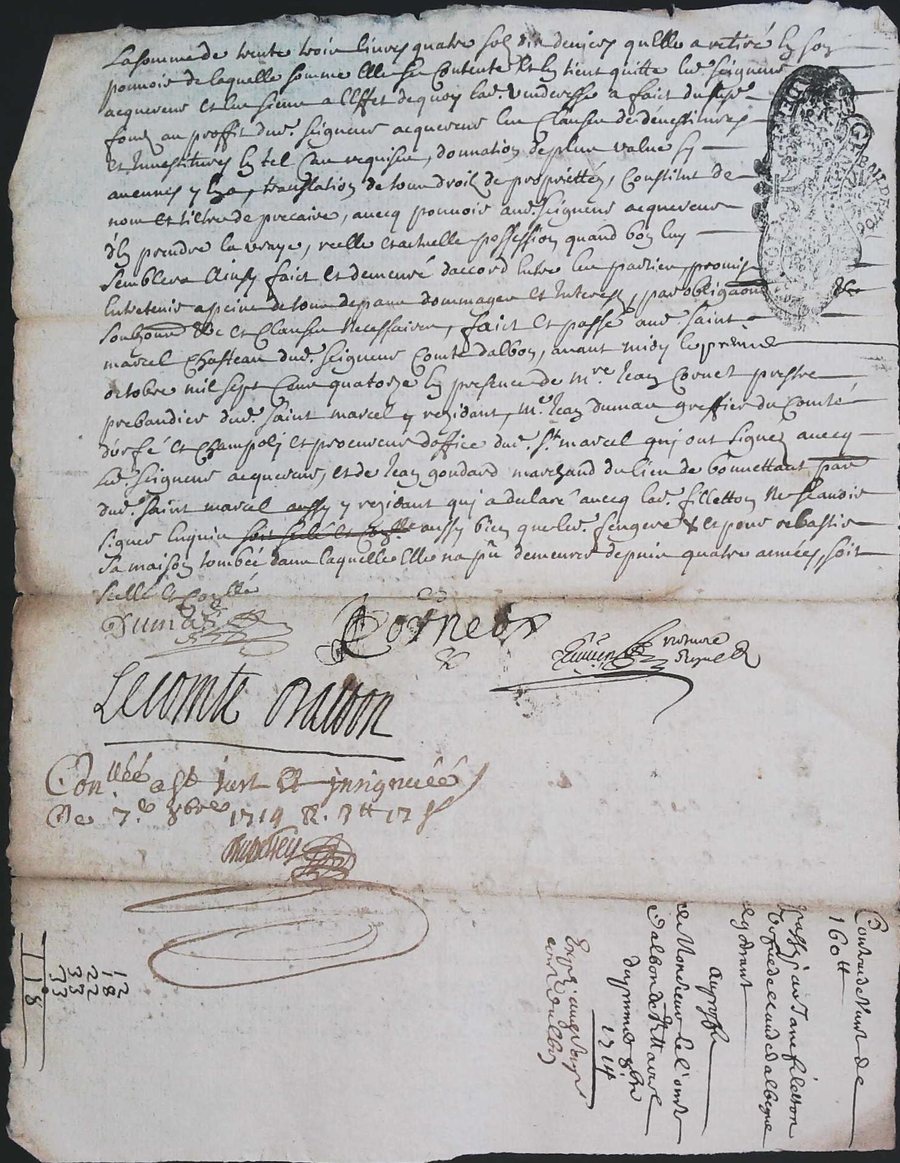 La somme de trente trois livres quatre solz six deniers qu'elle a retiré en son
pouvoir de laquelle somme elle se contente et en tient quitte led. seigneur
acquereur et les siens a l'effet de quoy lad. venderesse a fait du susd.
fond au proffit dud. seigneur acquereur les clauses de devestitures
et Investitures en tel cas requises, donnation de plus value sy
aucunes y ha, translation de tous droits de proprietté, Constitut de
nom et tiltre de precaire, avecq pouvoir aud. seigneur acquereur
d'en prendre la vraye, reelle et actuelle possession quand bon luy
semblera Ainsy faict et demeuré d'accord entre les parties, promis
entretenir a peine de tous depans dommages et Interests, par obligaon
soubzmon &c et Clauses necessaires, faict et passé aud. saint
marcel chasteau dud. seigneur Comte d'albon, avant midy le premier
octobre mil sept cens quatorze en presence de mre Jean Cornet prestre
prebandier dud. saint marcel y rezidant, me Jean dumas greffier du Comté
d'urfé et champoly et procureur d'office dud. st. marcel qui ont signez avecq
led. seigneur acquereur, et de Jean goudard marchand du lieu de
dud. saint marcel aussy y rezidant qui a declaré avecq lad. filletton ne sçavoir
signer enquis aussy bien que led. et pour rebastir
sa maison tombée dans laquelle elle na pu demeurer depuis quatre années, soit
scellé et conllé
Dumas
Cornet
notaire
Royal
Le comte Dalbon
Conllé a st just et insignuéé
Ce 7e 8bre 1714 R.
Contrat de vente de
160tt
passé par Jane filetton
rezidant
au proffit
de Monsieur le Comte
d'albon de st marcel
du premier 8bre
1714
12
18
22
33
33
118